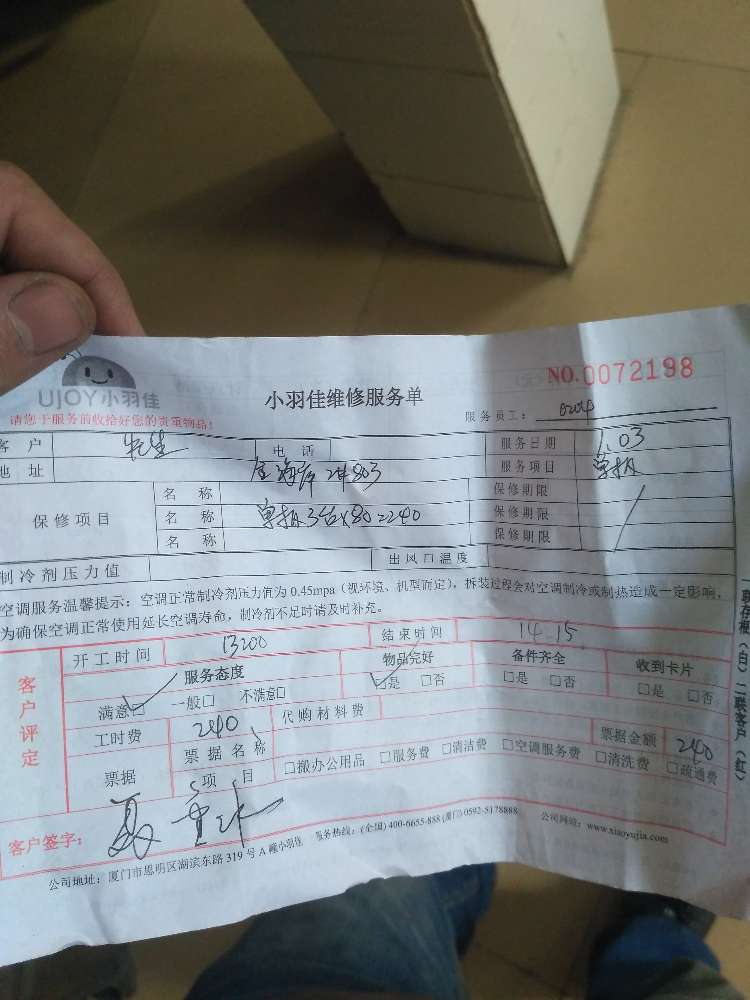 UJOY小羽佳
小羽佳维修服务单
NO.0072198
请您于服务前收给好您的贵重物品!
服务员工:
客 户 电 话 服务日期 1.03
地 址 2#803 服务项目 单拆
保修项目 名 称 保修期限
名 称 单拆3台×80=240 保修期限
名 称 保修期限
制冷剂压力值 出风口温度
空调服务温馨提示:空调正常制冷剂压力值为 0.45mpa(视环境、机型而定),拆装过程会对空调制冷或制热造成一定影响,
为确保空调正常使用延长空调寿命,制冷剂不足时请及时补充。
客户评定
开工时间 13:00 结束时间 14.15
服务态度 物品完好 备件齐全 收到卡片
满意□ 一般□ 不满意□ □是 □否 □是 □否 □是 □否
工时费 240 代购材料费
票据 票据名称 票据金额 240
项 目 □搬办公用品 □服务费 □清洁费 □空调服务费 □清洗费 □疏通费
客户签字:
公司地址:厦门市思明区湖滨东路 319 号 A 幢小羽佳 服务热线:(全国)400-6655-888 (厦门) 0592-5178888 公司网址:www.xiaoyujia.com
联存根(白)二联客户(红)